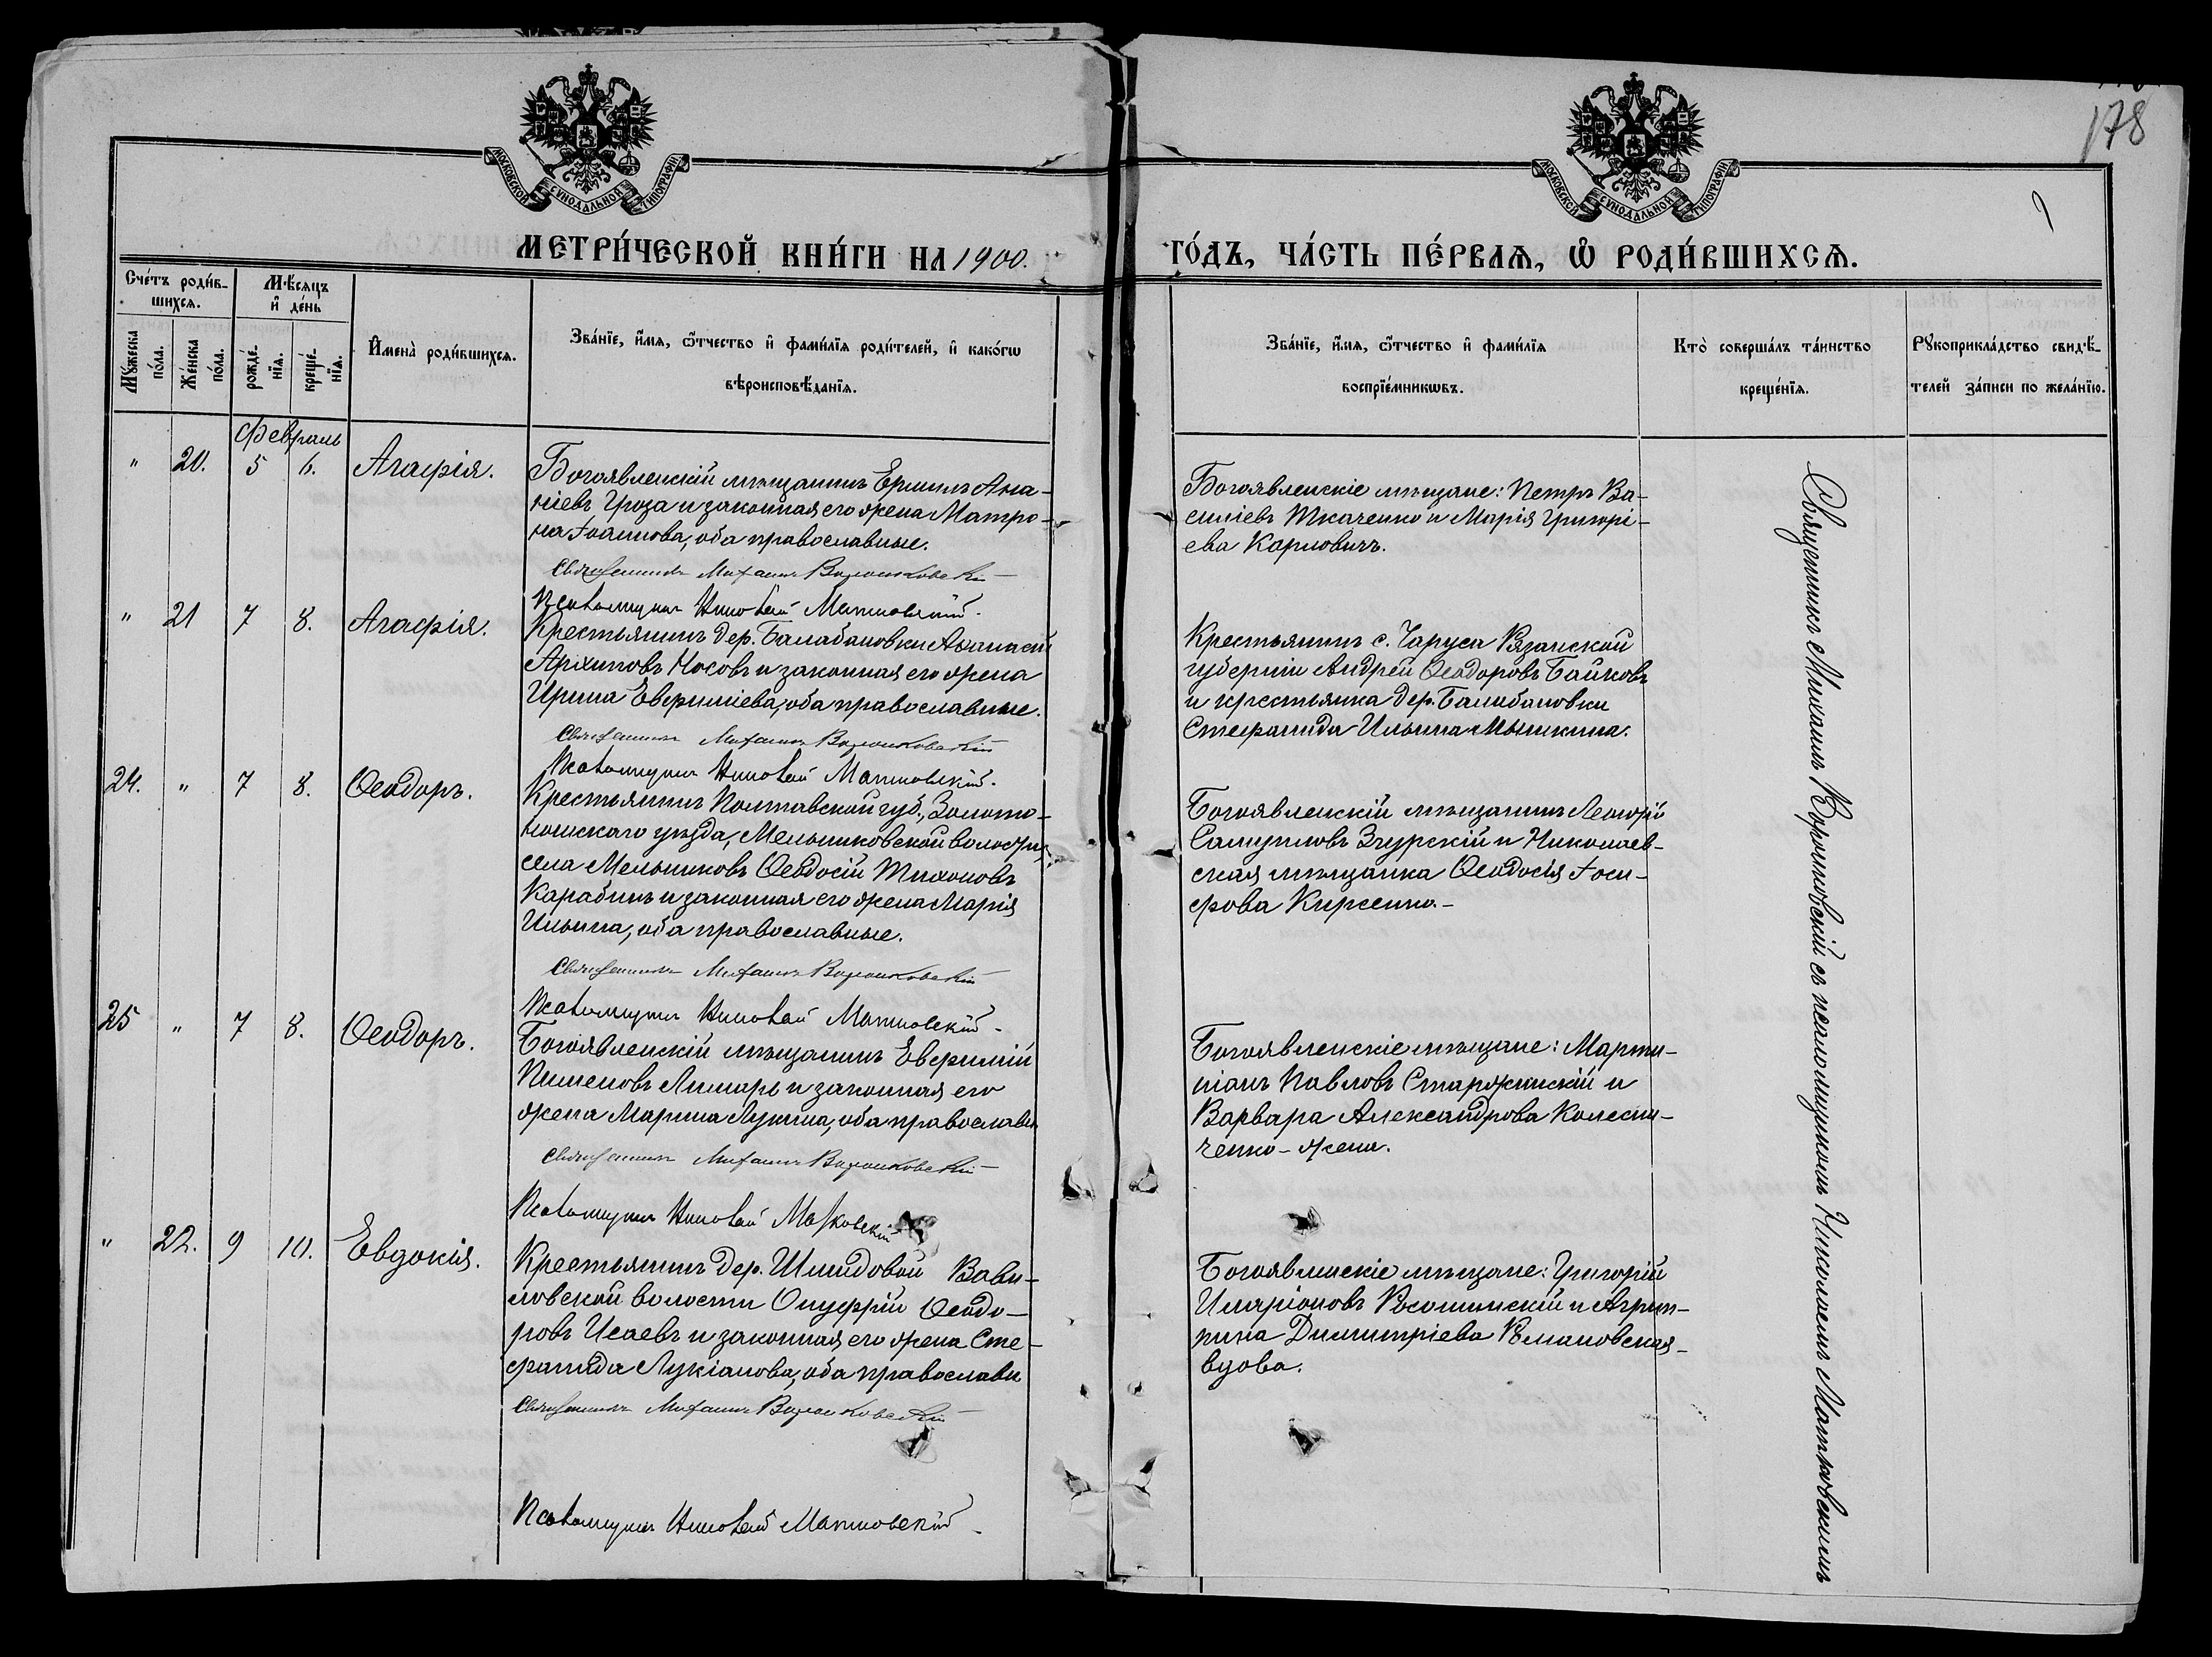 178
МОСКОВСКОЙ СѴНОДАЛЬНОЙ ТИПОГРАФІИ
МОСКОВСКОЙ СѴНОДАЛЬНОЙ ТИПОГРАФІИ
МЕТРИ́ЧЕСКОЙ КНИ́ГИ НА 1900.
ГО́ДЪ, ЧА́СТЬ ПЕ́РВАѦ, Ѡ҆ РОДИ́ВШИХСѦ.
Сче́тъ роди́в-
шихсѧ.
Мꙋ́жеска по́ла.
Же́нска по́ла.
Мѣ́сѧцъ
и҆ де́нь
рожде́-
нїѧ.
креще́-
нїѧ.
И҆мена̀ роди́вшихсѧ.
Зва́нїе, и҆́мѧ, ѻ҆́тчество и҆ фами́лїѧ роди́телей, и҆ како́гѡ
вѣроисповѣ́данїѧ.
Зва́нїе, и҆́мѧ, ѻ҆́тчество и҆ фами́лїѧ
воспрїе́мникѡвъ.
Кто̀ соверша́лъ та́инство
креще́нїѧ.
Рꙋкоприкла́дство свидѣ́-
телей за́писи по жела́нїю.
Февраль
" 20. 5 6. Агафія.
Богоявленскій мѣщанинъ Ермилъ Ана-
ніевъ Гроза и законная его жена Матро-
на Іоаннова, оба православные.
Священникъ Михаилъ Воронковскій
Псаломщикъ Николай Матковскій.
Богоявленскіе мѣщане: Петръ Ва-
силіевъ Ткаченко и Марія Григорі-
ева Карповичъ.
" 21 7 8. Агафія.
Крестьянинъ дер. Балабановки Аѳанасій
Архиповъ Носовъ и законная его жена
Ирина Евфиміева, оба православные.
Священникъ Михаилъ Воронковскій
Псаломщикъ Николай Матковскій.
Крестьянинъ с. Чаруса Рязанской
губерніи Андрей Ѳеодоровъ Байковъ
и крестьянка дер. Балабановки
Стефанида Ильина Мышкина.
24. " 7 8. Ѳеодоръ.
Крестьянинъ Полтавской губ., Золото-
ношскаго уѣзда, Мельниковской волости,
села Мельниковъ Ѳеодосій Тихоновъ
Карабинъ и законная его жена Марія
Ильина, оба православные.
Священникъ Михаилъ Воронковскій
Псаломщикъ Николай Матковскій.
Богоявленскій мѣщанинъ Георгій
Самуиловъ Згурскій и Николаев-
ская мѣщанка Ѳеодосія Іоси-
фова Кирженко.-
25 " 7 8. Ѳеодоръ.
Богоявленскій мѣщанинъ Евфимій
Пименовъ Лимарь и законная его
жена Марина Лукина, оба православн
Священникъ Михаилъ Воронковскій
Псаломщикъ Николай Матковскій
Богоявленскіе мѣщане: Марти-
ніанъ Павловъ Старжинскій и
Варвара Александрова Колесни-
ченко-жена.
" 22. 9 10. Евдокія.
Крестьянинъ дер. Шмидовой Вави-
ловской волости Онуфрій Ѳеодо-
ровъ Исаевъ и законная его жена Сте-
фанида Лукіанова, оба православн
Священникъ Михаилъ Воронковскій
Псаломщикъ Николай Матковскій
Богоявленскіе мѣщане: Григорій
Иларіоновъ Росошинскій и Агрип-
пина Димитріева Романовская-
вдова.
Священникъ Михаилъ Воронковскій съ псаломщикомъ Николаемъ Матковскимъ